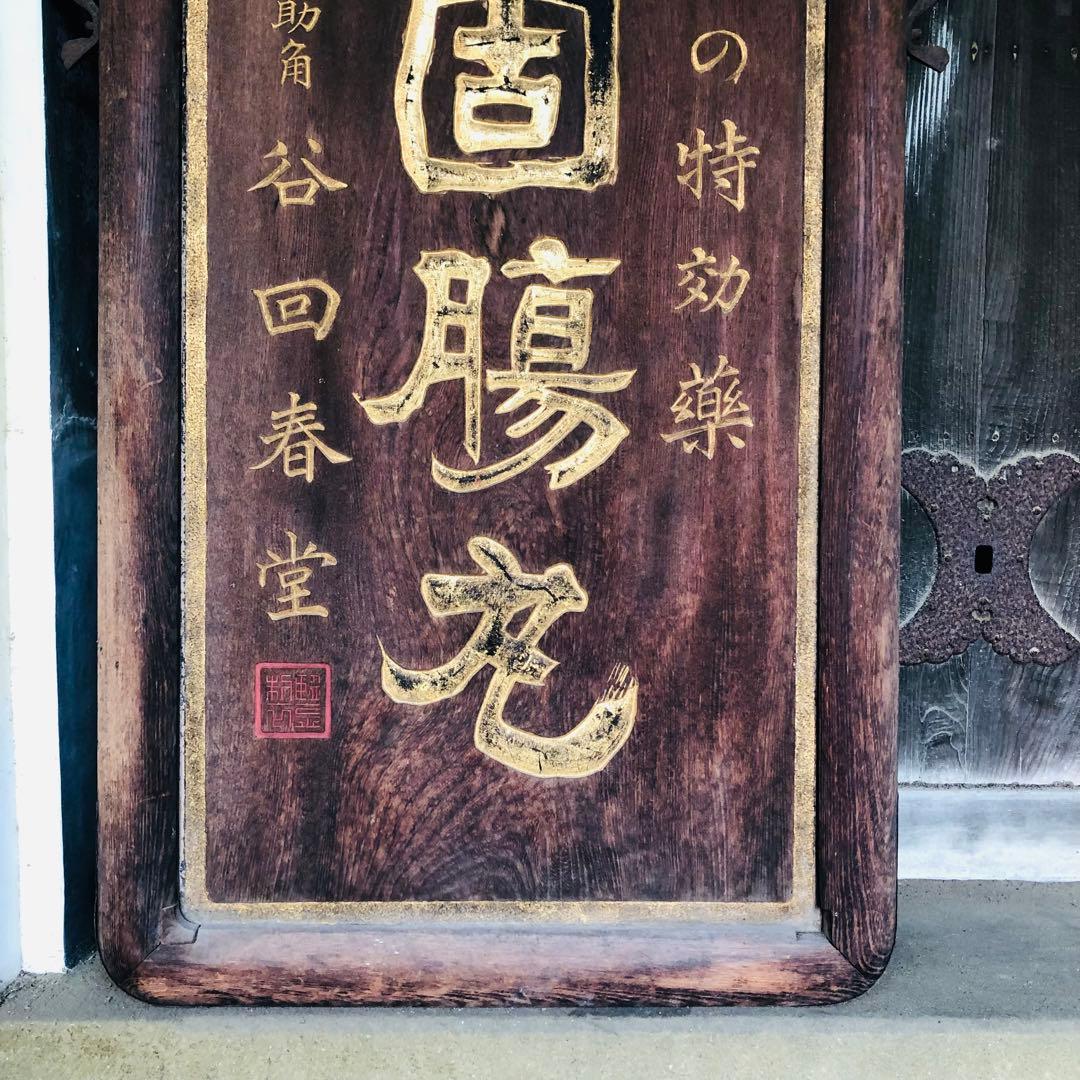 の特効薬
固腸丸
助角谷回春堂